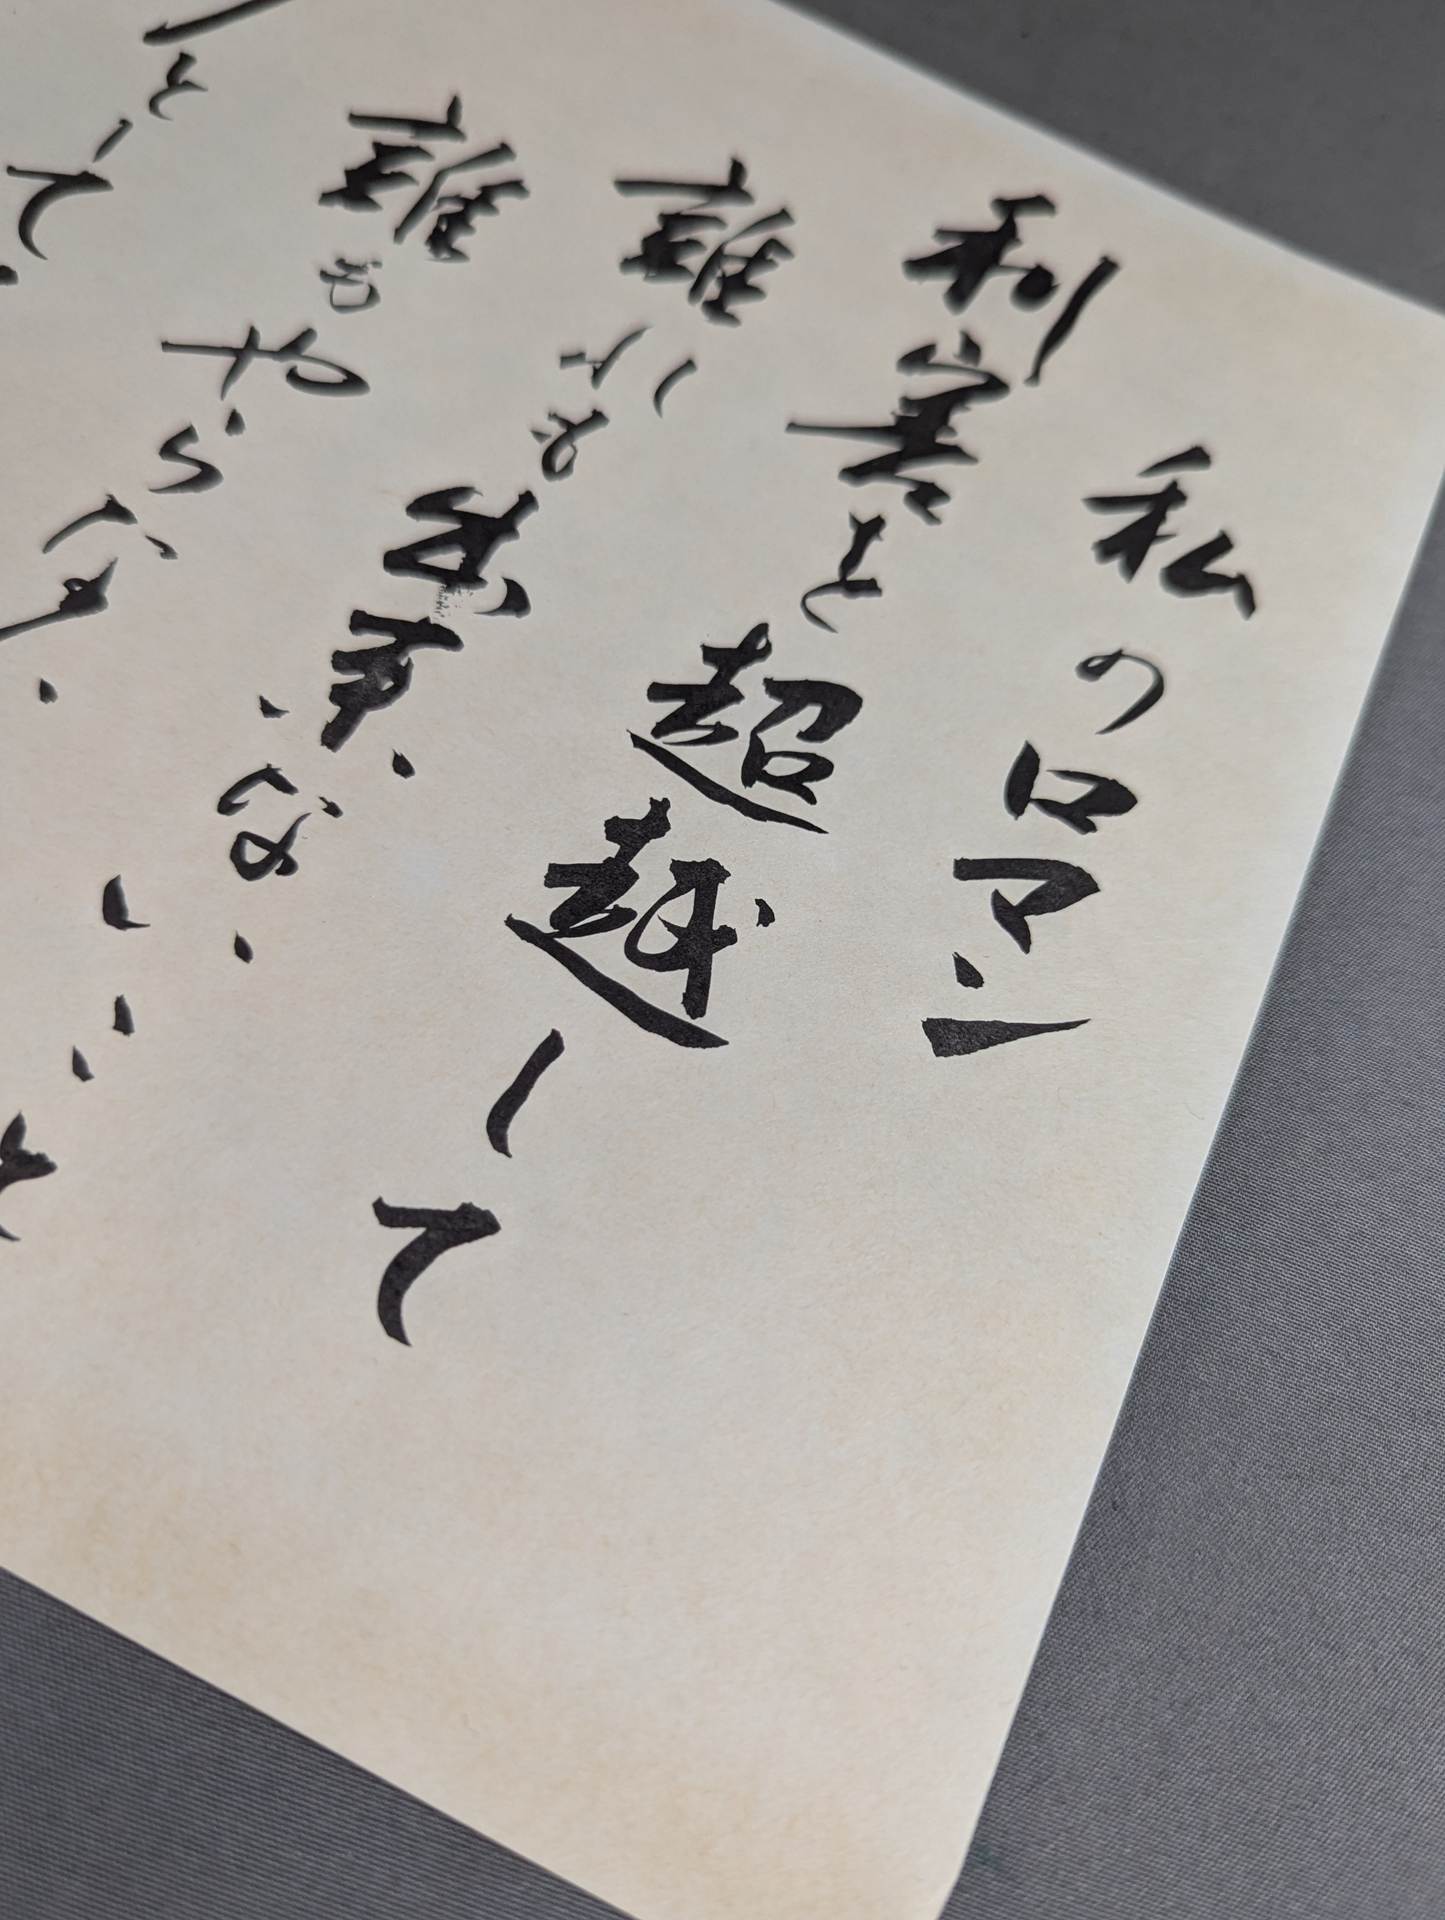 私のロマン
利害を超越して
誰れも出来ないこと
誰もやらな
として